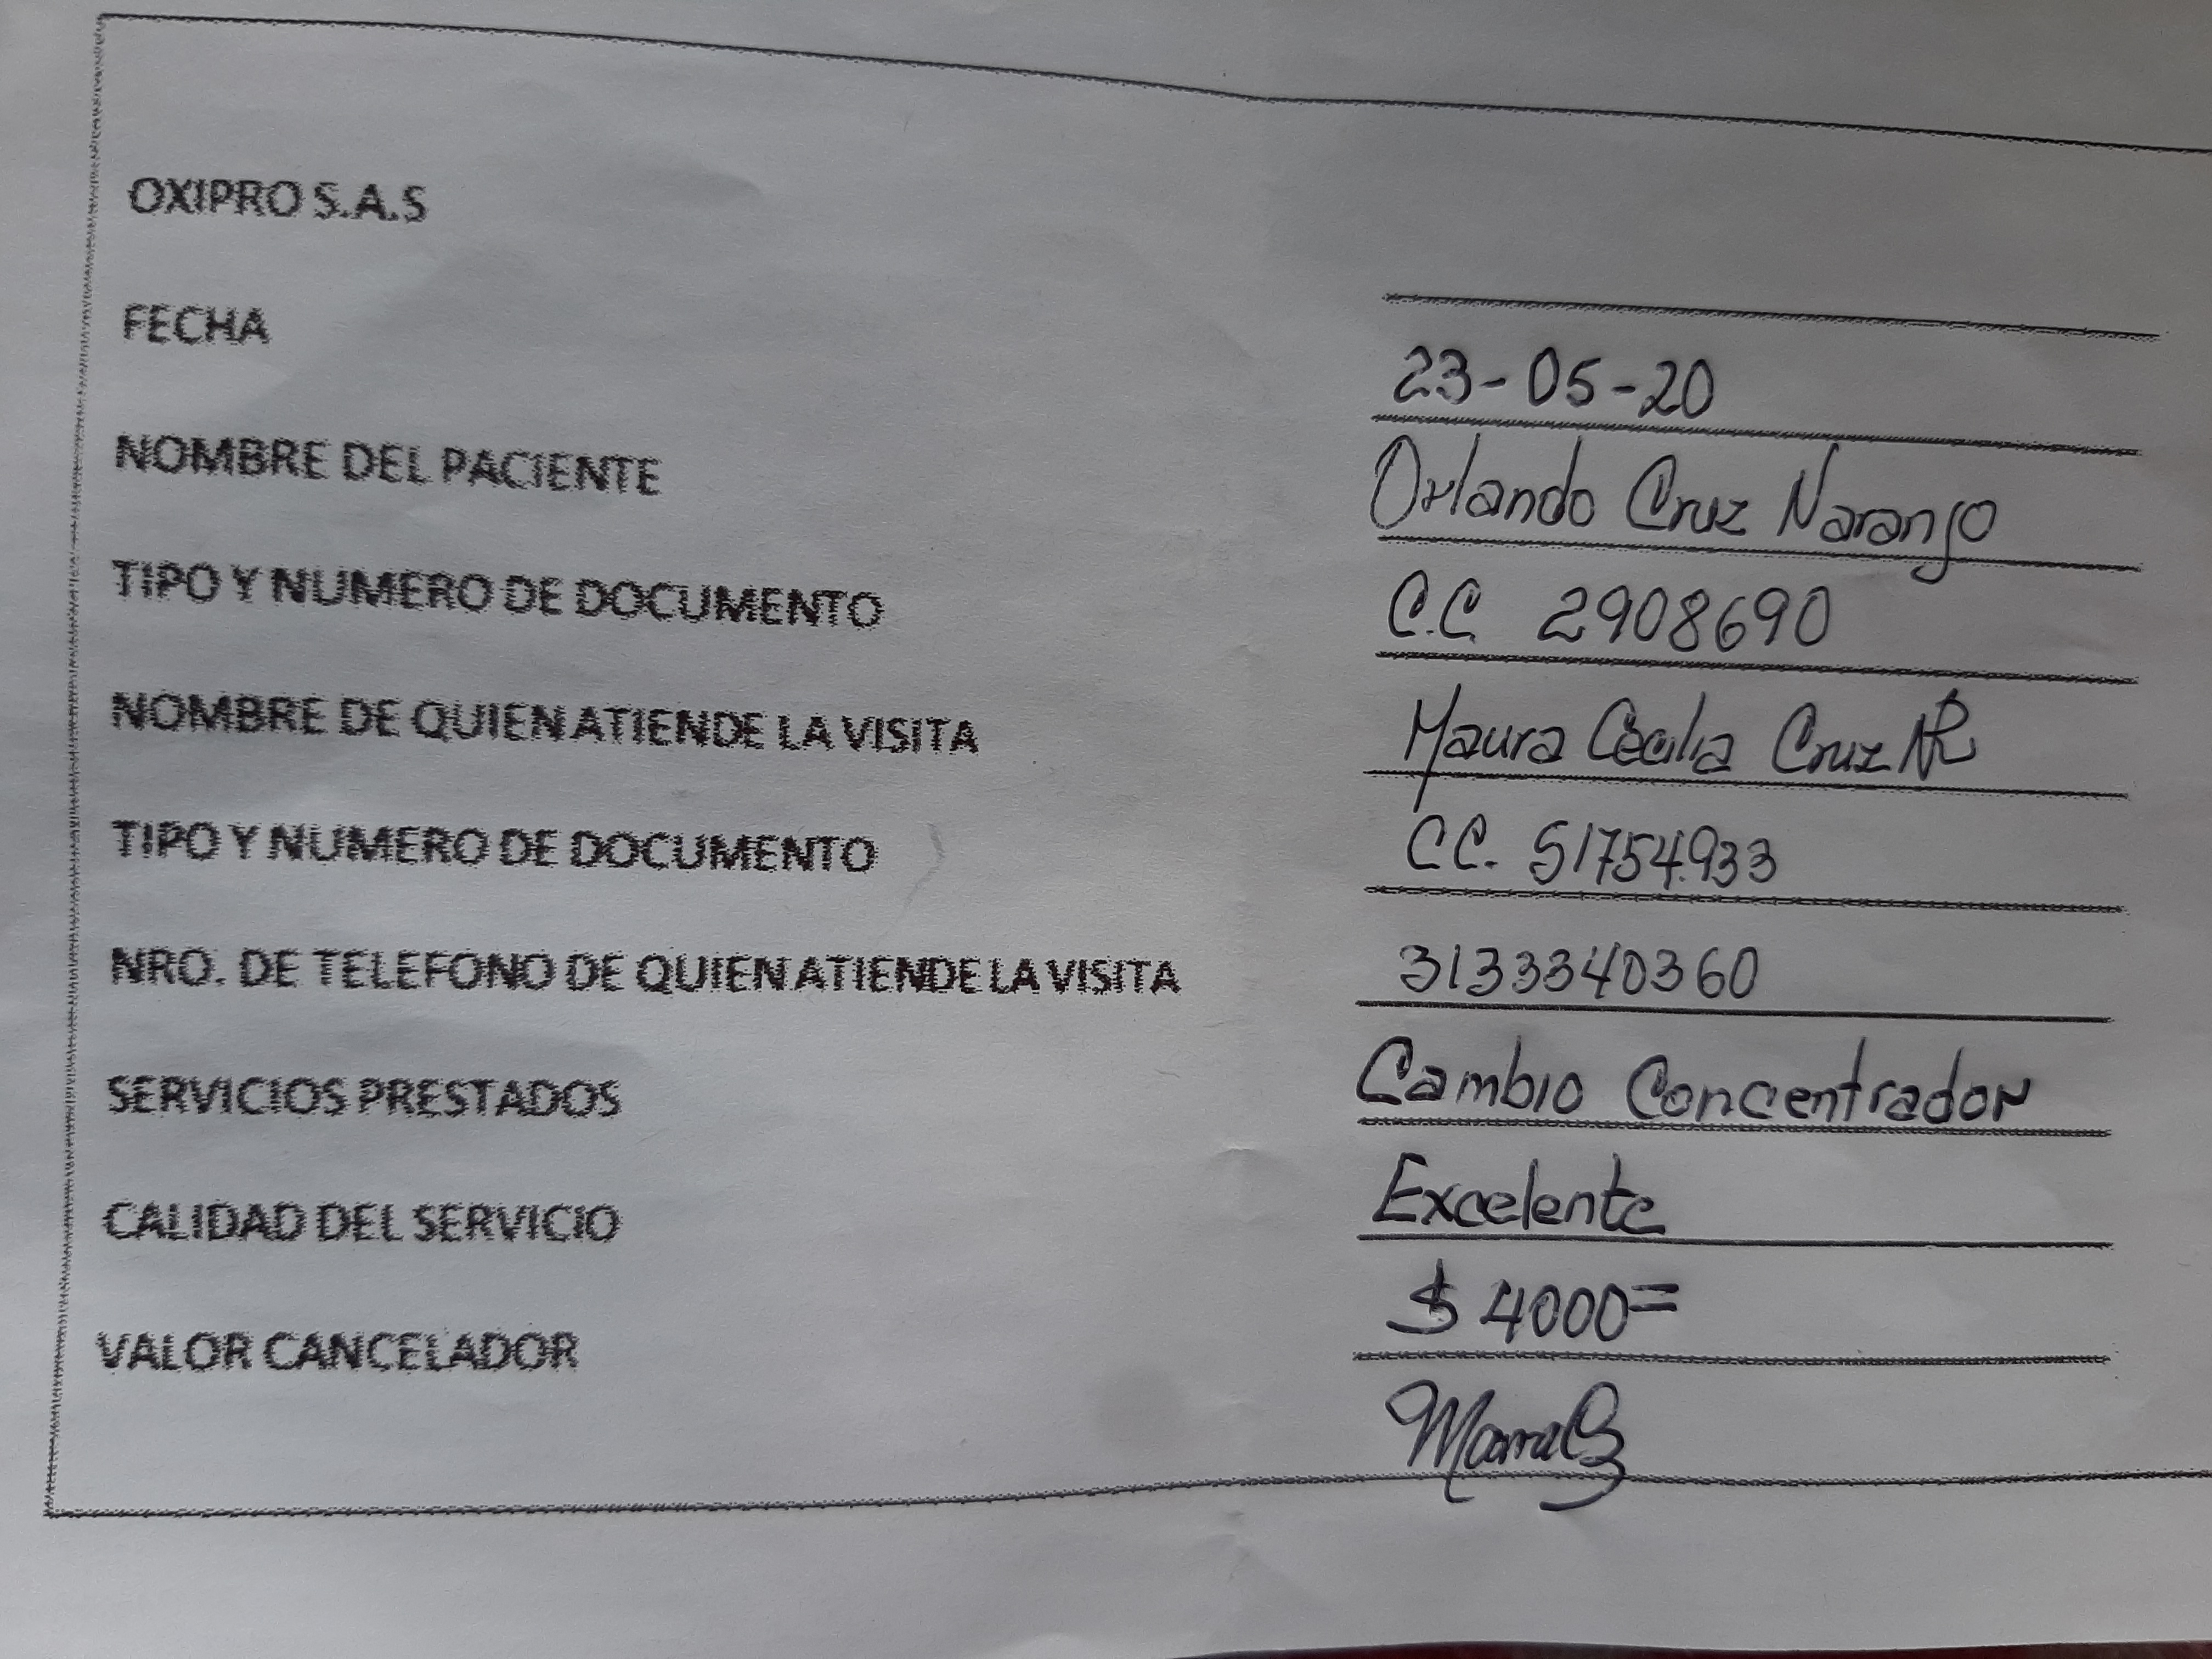 OXIPRO S.A.S
FECHA 23-05-20
NOMBRE DEL PACIENTE Orlando Cruz Naranjo
TIPO Y NUMERO DE DOCUMENTO C.C. 2908690
NOMBRE DE QUIEN ATIENDE LA VISITA Maura Cecilia Cruz
TIPO Y NUMERO DE DOCUMENTO CC. 51754.933
NRO. DE TELEFONO DE QUIEN ATIENDE LA VISITA 3133340360
SERVICIOS PRESTADOS Cambio Concentrador
CALIDAD DEL SERVICIO Excelente
VALOR CANCELADOR $ 4000=